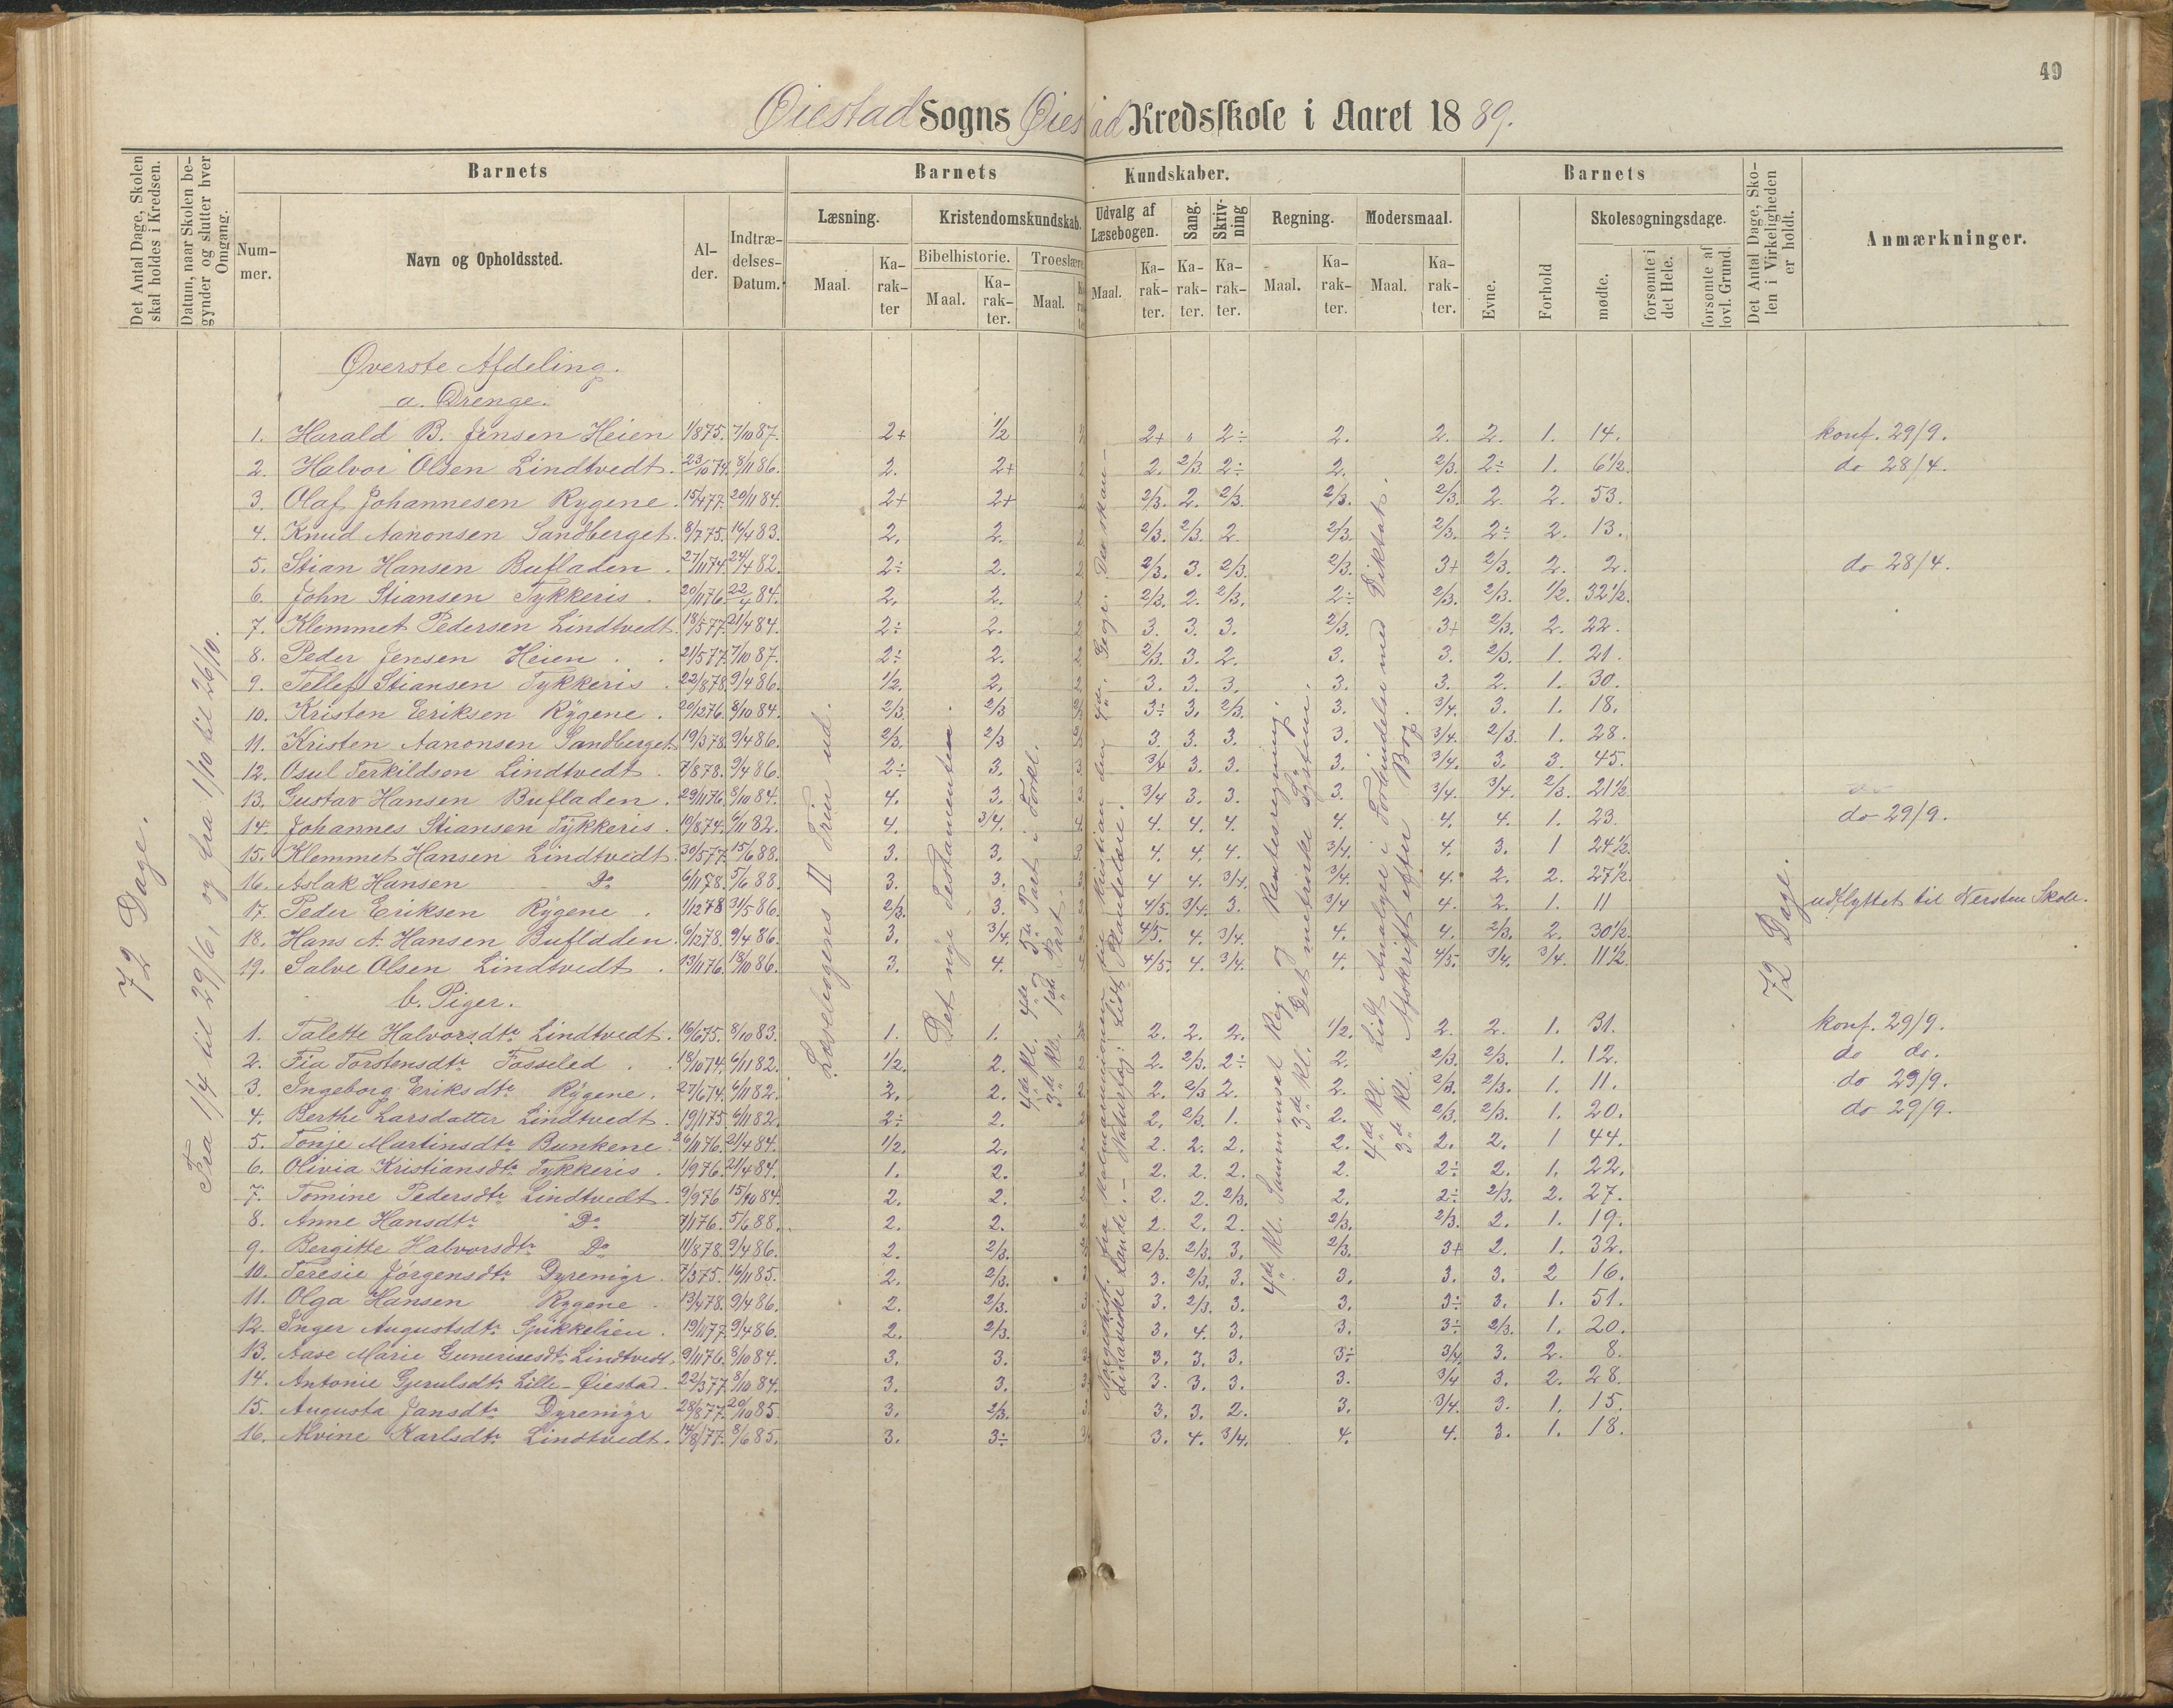 49
Øiestad Sogns Øiestad Kredsskole i Aaret 1889.
Det Antal Dage, Skolen skal holdes i Kredsen.
Datum, naar Skolen begynder og slutter hver Omgang.
Barnets
Barnets Kundskaber.
Barnets
Det Antal Dage, Skolen i Virkeligheden er holdt.
Anmærkninger.
Nummer.
Navn og Opholdssted.
Alder.
Indtrædelses-Datum.
Læsning.
Kristendomskundskab.
Udvalg af Læsebogen.
Sang.
Skrivning
Regning.
Modersmaal.
Evne.
Forhold
Skolesøgningsdage.
Bibelhistorie.
Troeslære
Maal.
Karakter
Maal.
Karakter.
Maal.
Maal.
Karakter.
Karakter.
Karakter.
Maal.
Karakter.
Maal.
Karakter.
mødte.
forsømte i det Hele.
forsømte af lovl. Grund.
72 Dage.
Fra 1/4 til 29/6, og fra 1/10 til 26/10.
Læsebogens II Trin ud.
Det nye Testamenten.
4de Kl. 4de og 5te Part i Forkl.
3de Kl. 1ste Part.
4de Kl. Sammensat Reg. og Rentesregning.
3de Kl. Det metriske System.
4de Kl. Lidt Analyse i Forbindelse med Diktat.
3de Kl. Afskrift efter Bog.
72 Dage.
Øverste Afdeling.
a. Drenge.
1. Harald B. Jensen Heien 1/8 75. 7/10 87. 2+ 1/2 2+ 2÷ 2. 2. 2. 1. 14. konf. 29/9.
2. Halvor Olsen Lindtvedt. 23/10 74. 8/11 86. 2. 2+ 2. 2/3. 2÷ 2. 2/3. 2÷ 1. 6 1/2. do 28/4.
3. Olaf Johannesen Rygene. 15/4 77. 20/11 84. 2+ 2+ 2/3. 2. 2/3. 2/3. 2/3. 2. 2. 53.
4. Knud Aanonsen Sandberget. 8/7 75. 16/4 83. 2. 2. 2/3. 2/3. 2 2/3. 2/3. 2÷ 2. 13.
5. Stian Hansen Bufladen. 27/11 74. 24/4 82. 2÷ 2. 2/3. 3. 2/3. 2/3. 3+ 2/3. 2. 2. do 28/4.
6. John Stiansen Tykkeris. 20/11 76. 22/4 84. 2. 2. 2/3. 2. 2/3. 2÷ 2/3. 2/3. 1/2. 32 1/2.
7. Klemmet Pedersen Lindtvedt. 18/5 77. 21/4 84. 2÷ 2. 3. 3. 3. 2/3. 3+ 2/3. 2. 22.
8. Peder Jensen Heien. 21/5 77. 7/10 87. 2÷ 2. 2/3. 3. 2. 3. 3. 2/3. 1. 21.
9. Tellef Stiansen Tykkeris. 22/8 78. 9/4 86. 1/2. 2. 3. 3. 3. 3. 3. 2. 1. 30.
10. Kristen Eriksen Rygene. 20/12 76. 8/10 84. 2/3. 2/3 3÷ 3. 2/3. 3. 3/4. 3. 1. 18.
11. Kristen Aanonsen Sandberget 19/3 78. 9/4 86. 2/3. 2/3 3. 3. 3. 3. 3/4. 2/3. 1. 28.
12. Osul Terkildsen Lindtvedt. 7/8 78. 9/4 86. 2÷ 3. 3/4 3. 3. 3. 3/4. 3. 3. 45.
13. Gustav Hansen Bufladen. 29/11 76. 8/10 84. 4. 3. 3/4 3. 3. 3. 3/4. 3/4. 2/3. 21 1/2.
14. Johannes Stiansen Tykkeris. 10/8 74. 6/11 82. 4. 3/4. 4. 4. 4. 4. 4. 4. 1. 23. do 29/9.
15. Klemmet Hansen Lindtvedt. 30/5 77. 15/6 88. 3. 3. 4. 4. 4. 3/4. 4. 3. 1 24 1/2.
16. Aslak Hansen Do 6/11 78. 5/6 88. 3. 3. 4 4. 3/4. 3/4. 4. 2. 2. 27 1/2.
17. Peder Eriksen Rygene. 1/2 78 31/5 86. 2/3. 3. 4/5. 3/4. 3. 3/4 4. 2. 1. 11 udflyttet til Nersten Skole.
18. Hans A. Hansen Bufladen. 9/2 78. 9/4 86. 3. 3/4. 4/5. 4. 3/4. 4. 4. 2/3. 2. 30 1/2.
19. Salve Olsen Lindtvedt. 13/11 76. 18/10 86. 3. 4. 4/5. 4. 3/4. 4. 4/5. 3/4. 3/4. 11 1/2.
b. Piger.
1. Talette Halvorsdtr. Lindtvedt. 16/6 75. 8/10 83. 1. 1. 2. 2. 2. 1/2. 2. 2. 1. 31. konf. 29/9.
2. Fia Torstensdtr. Fosseled. 18/10 74. 6/11 82. 1/2. 2. 2. 2/3. 2÷ 2. 2/3. 2/3. 1. 12. do do.
3. Ingeborg Eriksdtr. Rygene. 27/6 74. 6/11 82. 2. 2. 2. 2/3 2. 2. 2/3. 2/3. 1. 11. do 29/9.
4. Berthe Larsdatter Lindtvedt. 19/1 75. 6/11 82. 2÷ 2. 2. 2/3. 1. 2. 2/3. 2/3. 1. 20. do 29/9.
5. Tonje Martinsdtr. Bunkene. 26/11 76. 21/4 84. 1/2. 2. 2. 2. 2. 2. 2. 2. 1 44.
6. Olivia Kristiansdtr. Tykkeris. 1/9 76. 21/4 84. 1. 2. 2. 2. 2. 2. 2÷ 2. 1. 22.
7. Tomine Pedersdtr. Lindtvedt. 9/9 76 15/10 84. 2. 2. 2. 2. 2/3. 2. 2÷ 2/3. 2. 27.
8. Anne Hansdtr. Do 7/1 76. 5/6 88. 2. 2. 2. 2. 2. 2/3. 2/3. 2. 1. 19.
9. Bergitte Halvorsdtr. Do 11/8 78. 9/4 86. 2. 2/3. 2/3. 2/3. 3. 2/3. 3+ 2. 1. 32.
10. Teresie Jørgensdtr. Dyremyr. 7/3 75. 16/11 85. 2. 2/3. 3. 2/3. 3. 3. 3. 3. 2 16.
11. Olga Hansen Rygene. 13/4 78. 9/4 86. 2. 2/3. 3. 2/3. 3. 3. 3÷ 3. 1. 51.
12. Inger Augustsdtr. Spikkelien. 19/11 77. 9/4 86. 2. 2/3. 3. 4. 3. 3. 3÷ 2/3. 1. 20.
13. Aase Marie Lindtvedt. 9/11 76. 8/10 84. 3. 3. 3. 3. 3. 3÷ 3/4. 3. 2. 8.
14. Antonie Gjerulsdtr. Lille-Øiestad. 22/3 77. 8/10 84. 3. 3. 3. 3. 3. 3. 3/4 3. 2. 28.
15. Augusta Jansdtr. Dyremyr 28/8 77. 20/10 85. 3. 2/3. 3. 3. 2. 3. 3/4. 3. 1. 15.
16. Alvine Karlsdtr. Lindtvedt. 14/8 77. 8/6 85. 3. 3÷ 3. 4. 3/4. 4. 4. 3. 1. 18.